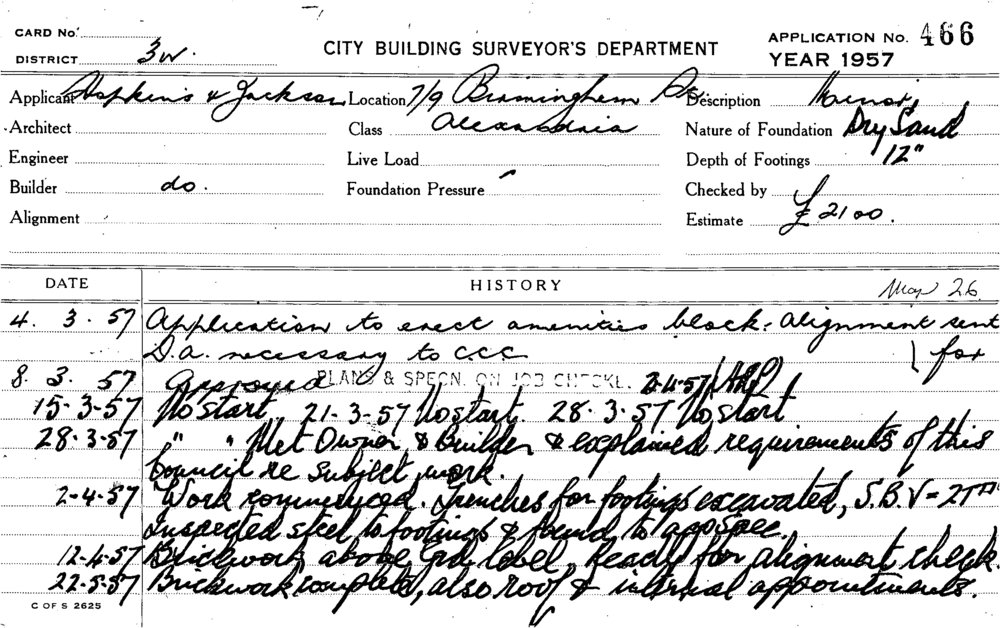 CARD No.
DISTRICT 3W.
CITY BUILDING SURVEYOR'S DEPARTMENT
APPLICATION No. 466
YEAR 1957
Applicant Hopkins & Jackson Location 7/9 Birmingham Description
Architect Class Alexandria Nature of Foundation Dry Sand
Engineer Live Load Depth of Footings 12"
Builder do. Foundation Pressure Checked by
Alignment Estimate £2100.
DATE HISTORY Map 26
4. 3. 57 Application to erect amenities block. Alignment sent for
D.A. necessary to CCC
8. 3. 57 Approved PLANS & SPECN. ON JOB CHECKE. 2-4-57
15-3-57 No start 21-3-57 No start. 28.3.57 No start
28-3-57 " " Met Owner & Builder & explained requirements of this
Council re subject work.
2-4-57 Work commenced. Trenches for footings excavated, S.B.V =
Inspected steel to footings & found to spec.
12-4-57 Brickwork above grd level, Ready for alignment check.
22-5-57 Brickwork complete, also roof & internal appointments.
C OF S 2625